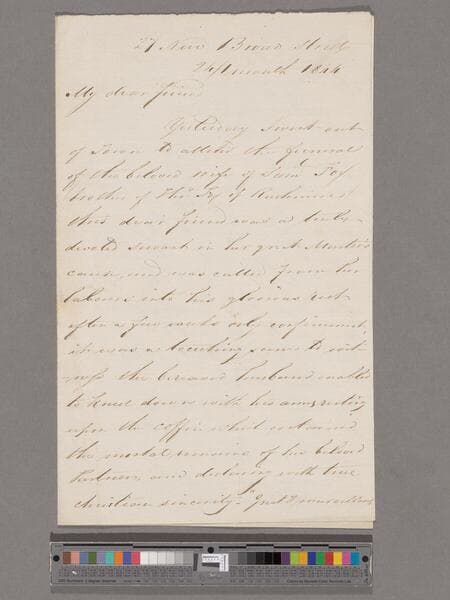 27 New Broad Street
24/1 month 1844
My dear friend
Yesterday I went out
of Town to attend the funeral
of the beloved wife of Sam Fox
brother of Tho Fox of
this dear friend was a truly
devoted servant in her great Master's
cause, and was called from her
labours into his glorious rest
after a few weeks only confinement,
it was a touching scene to wit-
ness the bereaved husband enabled
to kneel down with his arms resting
upon the coffin which contained
the mortal remains of his beloved
Partner, and declaring with true
christian sincerity, "Great & marvellous